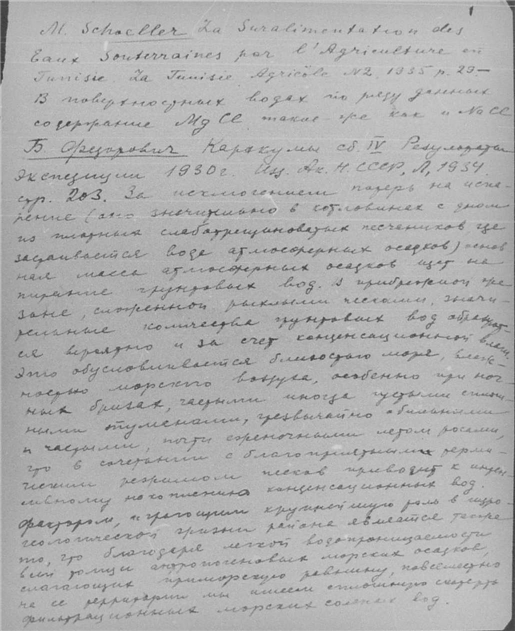 1
M. Schoeller La Suralimentation des
Eaux Souterraines par l'Agriculture en
Tunisie. La Tunisie Agricole N2, 1935 p. 29—
В поверхностных водах по ряду данных
содержание MgCl такое-же как и NaCl
Б. Федорович Каракумы сб. IV Результаты
Экспедиции 1930г. Изд. Ак. Н. СССР, Л, 1934
стр. 203. За исключением потерь на испа-
рение (оно значительно в котловинах с дном
из плотных слаботрещиноватых песчаников где
застаивается вода атмосферных осадков) основ
ная масса атмосферных осадков идет на
питание грунтовых вод. В прибрежной
зоне, сложенной рыхлыми песками, значи-
тельные количества грунтовых вод образуют
ся вероятно и за счет конденсационной влаги.
Это обусловливается близостью моря, влаж-
ностью морского воздуха, особенно при ноч-
ных бризах, частыми иногда густыми
туманами, чрезвычайно обильными
и частыми, почти еженочными летом росами,
что в сочетании с благоприятным терми-
ческим режимом песков приводит к интен
сивному накоплению конденсационных вод.
Фактором, играющим крупнейшую роль в гидро-
геологической жизни района является
то, что благодаря легкой водопроницаемости
всей толщи антропогеновых морских осадков,
слагающих приморскую равнину, повсеместно
на ее территории мы имеем сплошную скатерть
фильтрационных морских соленых вод.